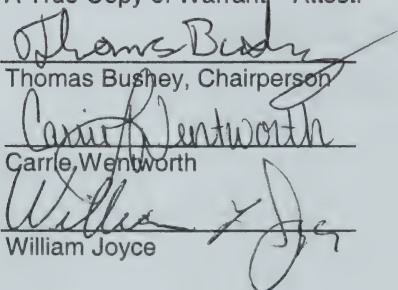 A True Copy of Warrant - Attest:
Thomas Bushey
Thomas Bushey, Chairperson
Carrie Wentworth
Carrie Wentworth
William Joyce
William Joyce